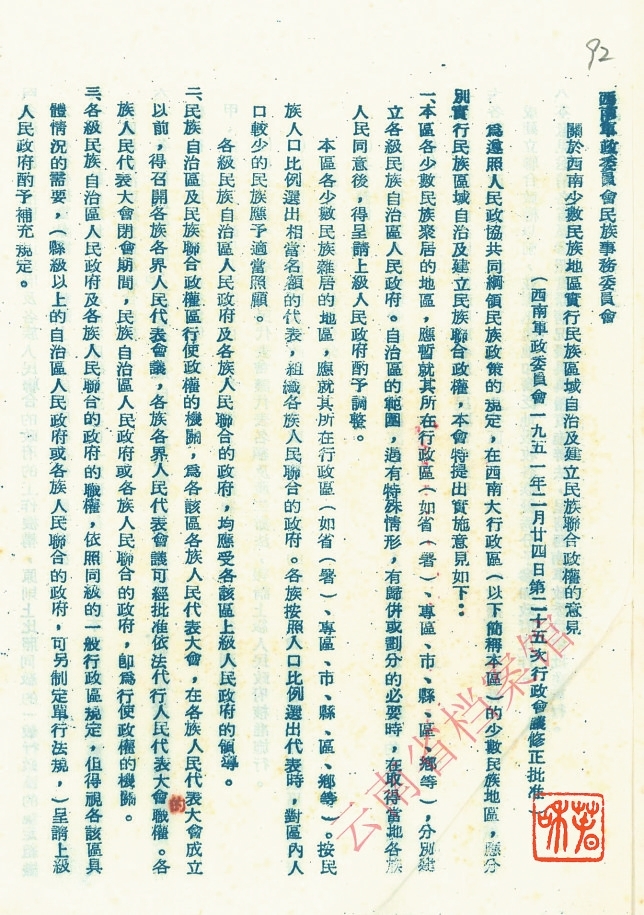 92
西南軍政委員會民族事務委員會
關於西南少數民族地區實行民族區域自治及建立民族聯合政權的意見
（西南軍政委員會一九五一年二月廿四日第二十五次行政會議修正批准）
為遵照人民政協共同綱領民族政策的規定，在西南大行政區（以下簡稱本區）的少數民族地區，應分
別實行民族區域自治及建立民族聯合政權，本會特提出實施意見如下：
一、本區各少數民族聚居的地區，應暫就其所在行政區（如省（署）、專區、市、縣、區、鄉等），分別建
立各級民族自治區人民政府。自治區的範圍，遇有特殊情形，有歸併或劃分的必要時，在取得當地各族
人民同意後，得呈請上級人民政府酌予調整。
本區各少數民族雜居的地區，應就其所在行政區（如省（署）、專區、市、縣、區、鄉等）。按民
族人口比例選出相當名額的代表，組織各族人民聯合的政府。各族按照人口比例選出代表時，對區內人
口較少的民族應予適當照顧。
各級民族自治區人民政府及各族人民聯合的政府，均應受各該區上級人民政府的領導。
二、民族自治區及民族聯合政權區行使政權的機關，爲各該區各族人民代表大會，在各族人民代表大會成立
以前，得召開各族各界人民代表會議，各族各界人民代表會議可經批准依法代行人民代表大會的職權。各
族人民代表大會閉會期間，民族自治區人民政府或各族人民聯合的政府，卽爲行使政權的機關。
三、各級民族自治區人民政府及各族人民聯合的政府的職權，依照同級的一般行政區規定，但得視各該區具
體情況的需要，（縣級以上的自治區人民政府或各族人民聯合的政府，可另制定單行法規，）呈請上級
人民政府酌予補充規定。
云南省档案馆